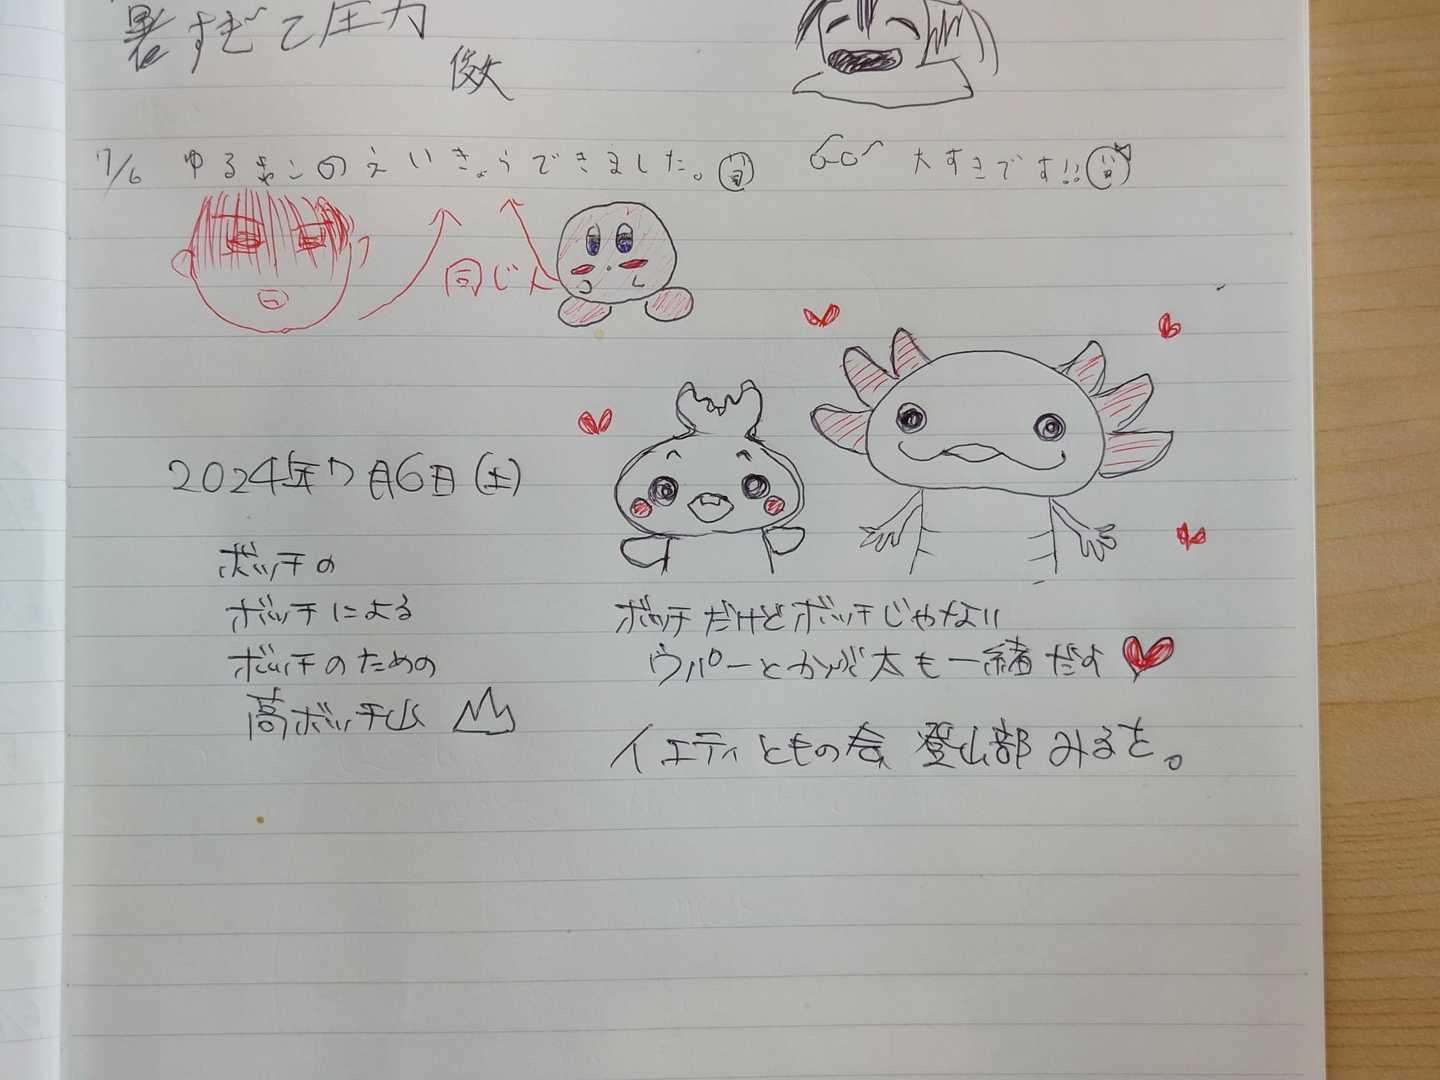 暑すぎて圧力
7/6 ゆるきゃんのえいきょうできました。
大すきです!!
同じ人
2024年7月6日(土)
ボッチの
ボッチによる
ボッチのための
高ボッチ山
ボッチだけどボッチじゃない
ウパーとかつが太も一緒だよ
イエティともの会 登山部 みるを。